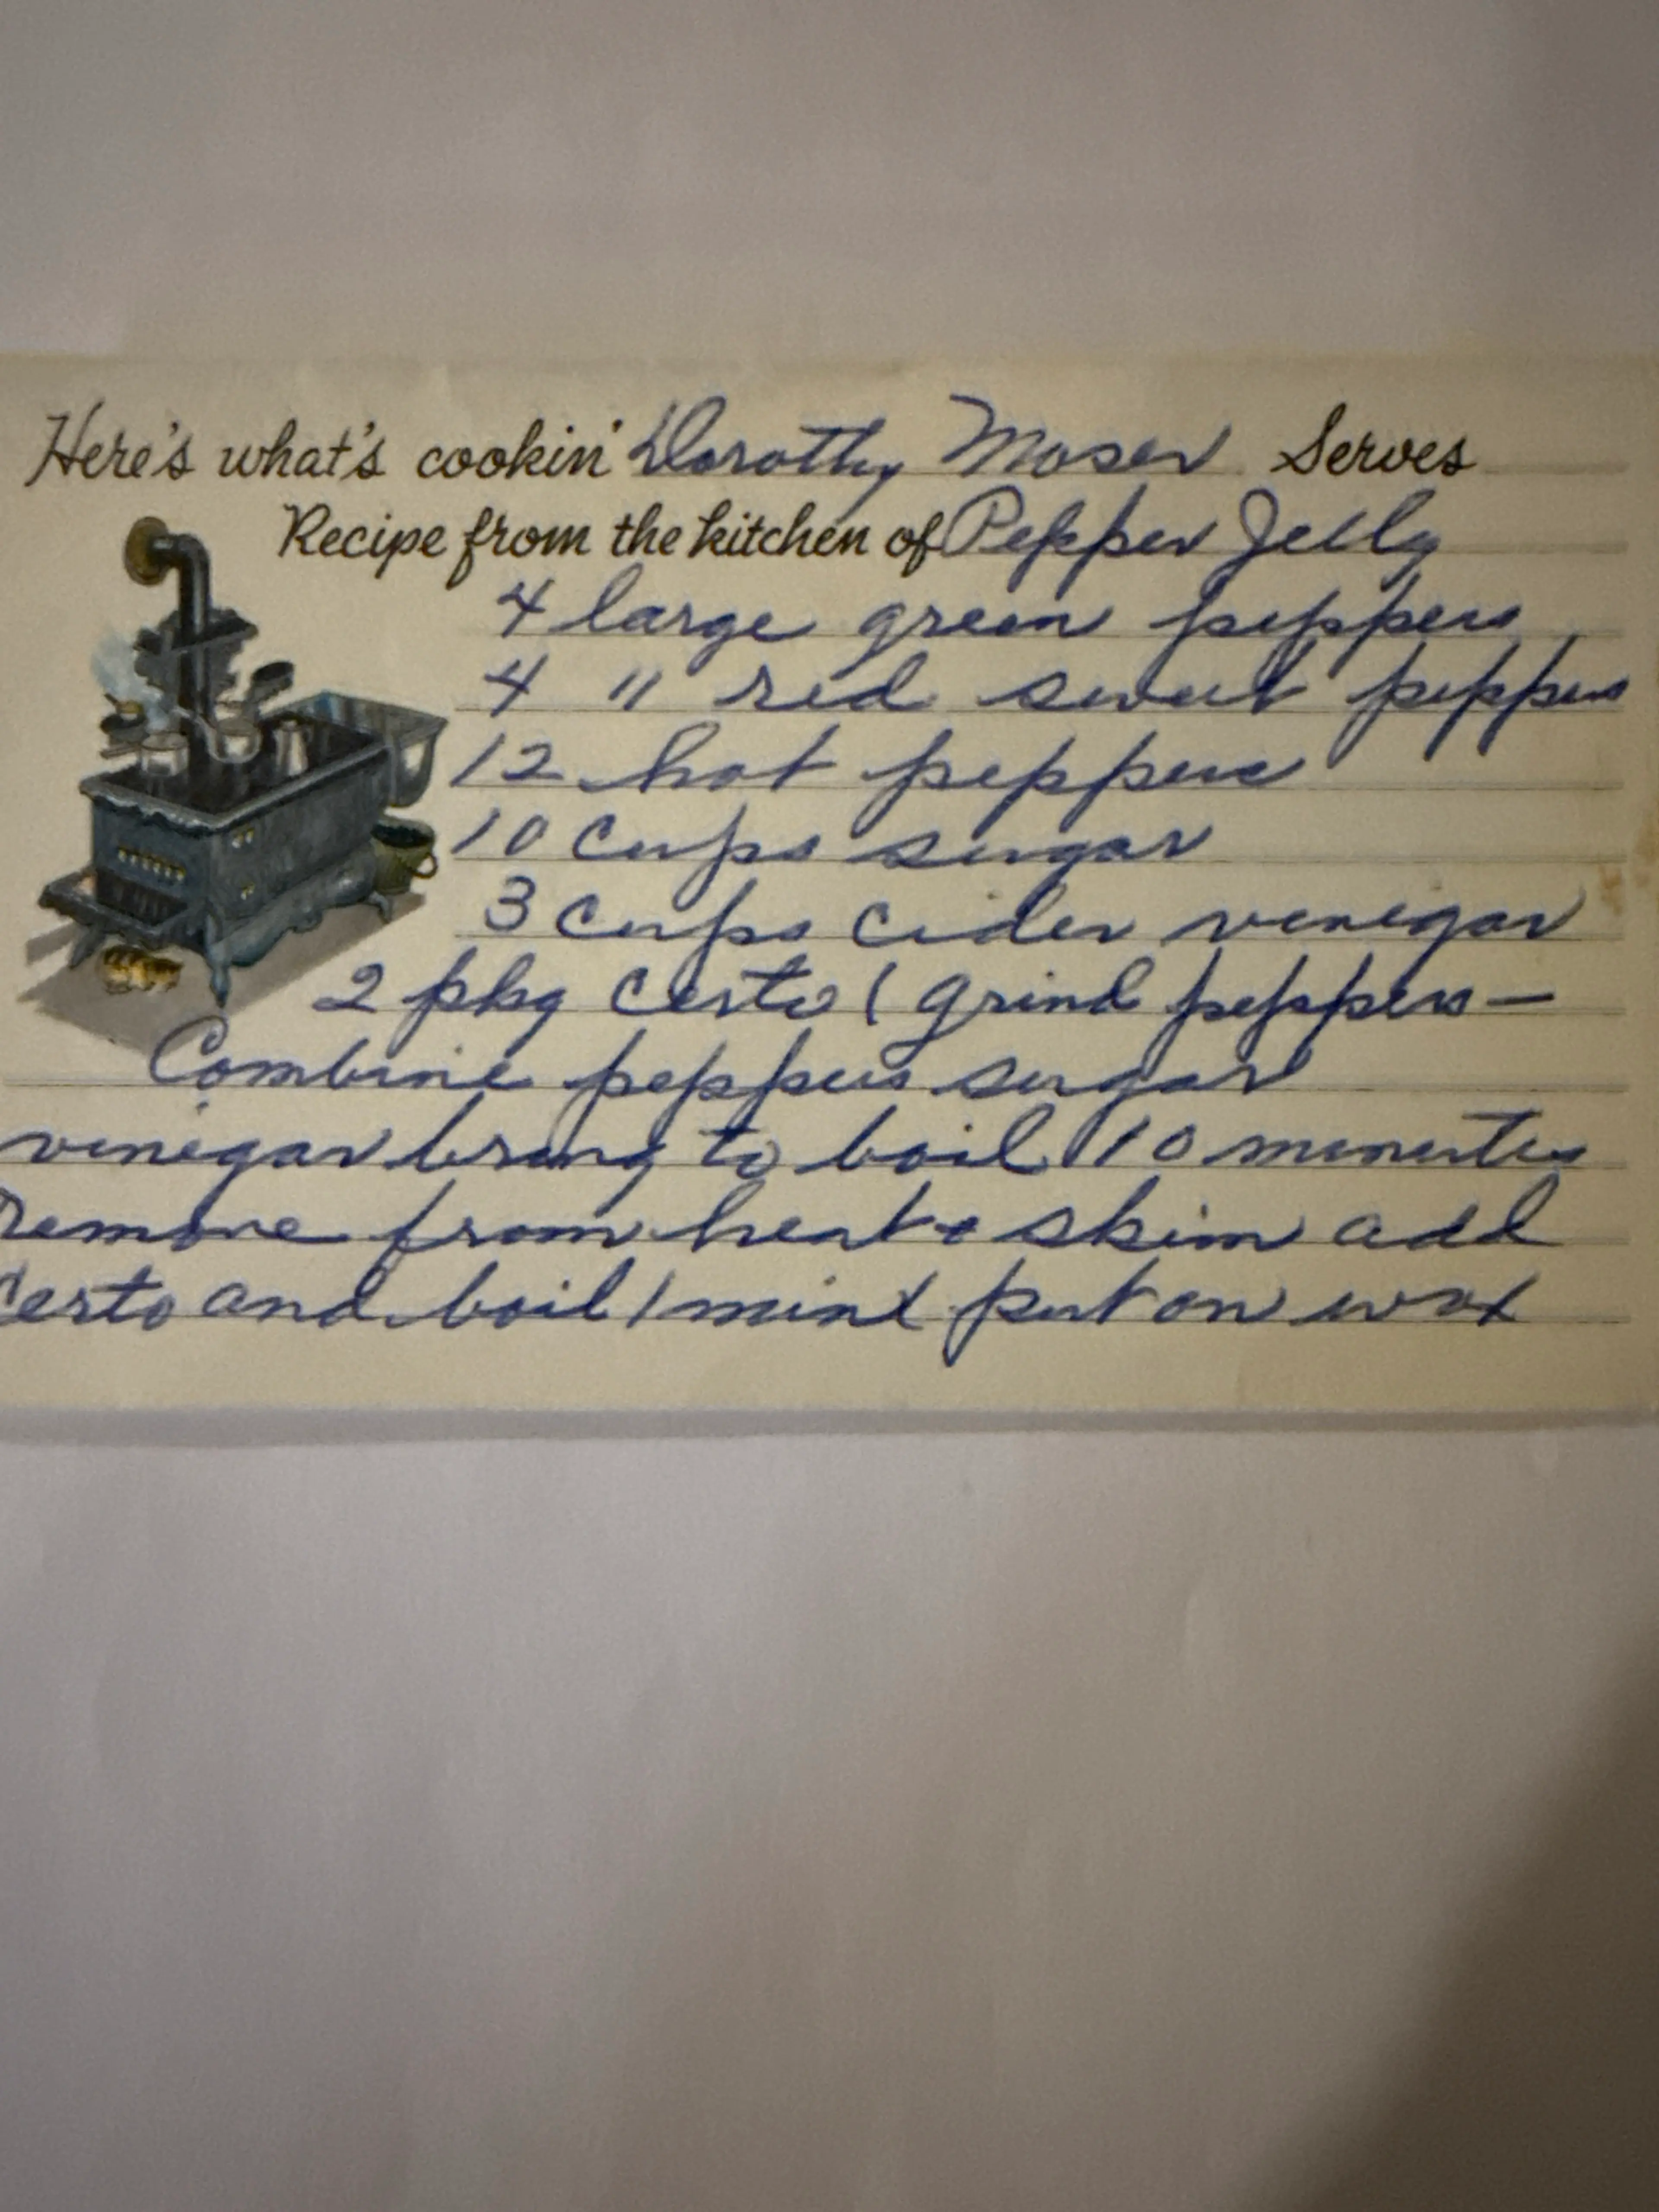 Here's what's cookin' Dorothy Moser Serves
Recipe from the kitchen of Pepper Jelly
4 large green peppers
4 " red sweet peppers
12 hot peppers
10 cups sugar
3 cups cider vinegar
2 pkg Certo ( grind peppers —
Combine peppers sugar
vinegar bring to boil 10 minutes
Remove from heat + skim add
Certo and boil 1 mint put on wax